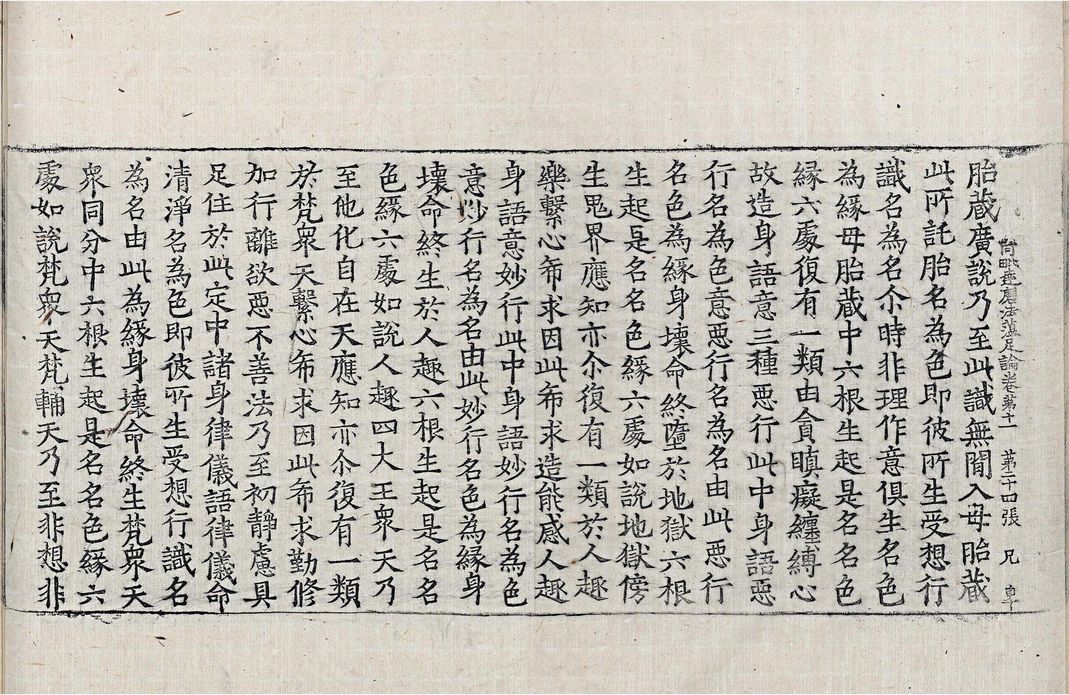 阿毗達磨法蘊足論卷第十一 第二十四張 兄
胎藏廣說乃至此識無閒入母胎藏
此所託胎名為色即彼所生受想行
識名為名尒時非理作意俱生名色
為緣母胎藏中六根生起是名名色
緣六處復有一類由貪瞋癡纏縛心
故造身語意三種惡行此中身語惡
行名為色意惡行名為名由此惡行
名色為緣身壞命終墮於地獄六根
生起是名名色緣六處如說地獄傍
生鬼界應知亦尒復有一類於人趣
樂繫心希求因此希求造能感人趣
身語意妙行此中身語妙行名為色
意妙行名為名由此妙行名色為緣身
壞命終生於人趣六根生起是名名
色緣六處如說人趣四大王衆天乃
至他化自在天應知亦尒復有一類
於梵衆天繫心希求因此希求勤修
加行離欲惡不善法乃至初靜慮具
足住於此定中諸身律儀語律儀命
清淨名為色即彼所生受想行識名
為名由此為緣身壞命終生梵衆天
衆同分中六根生起是名名色緣六
處如說梵衆天梵輔天乃至非想非